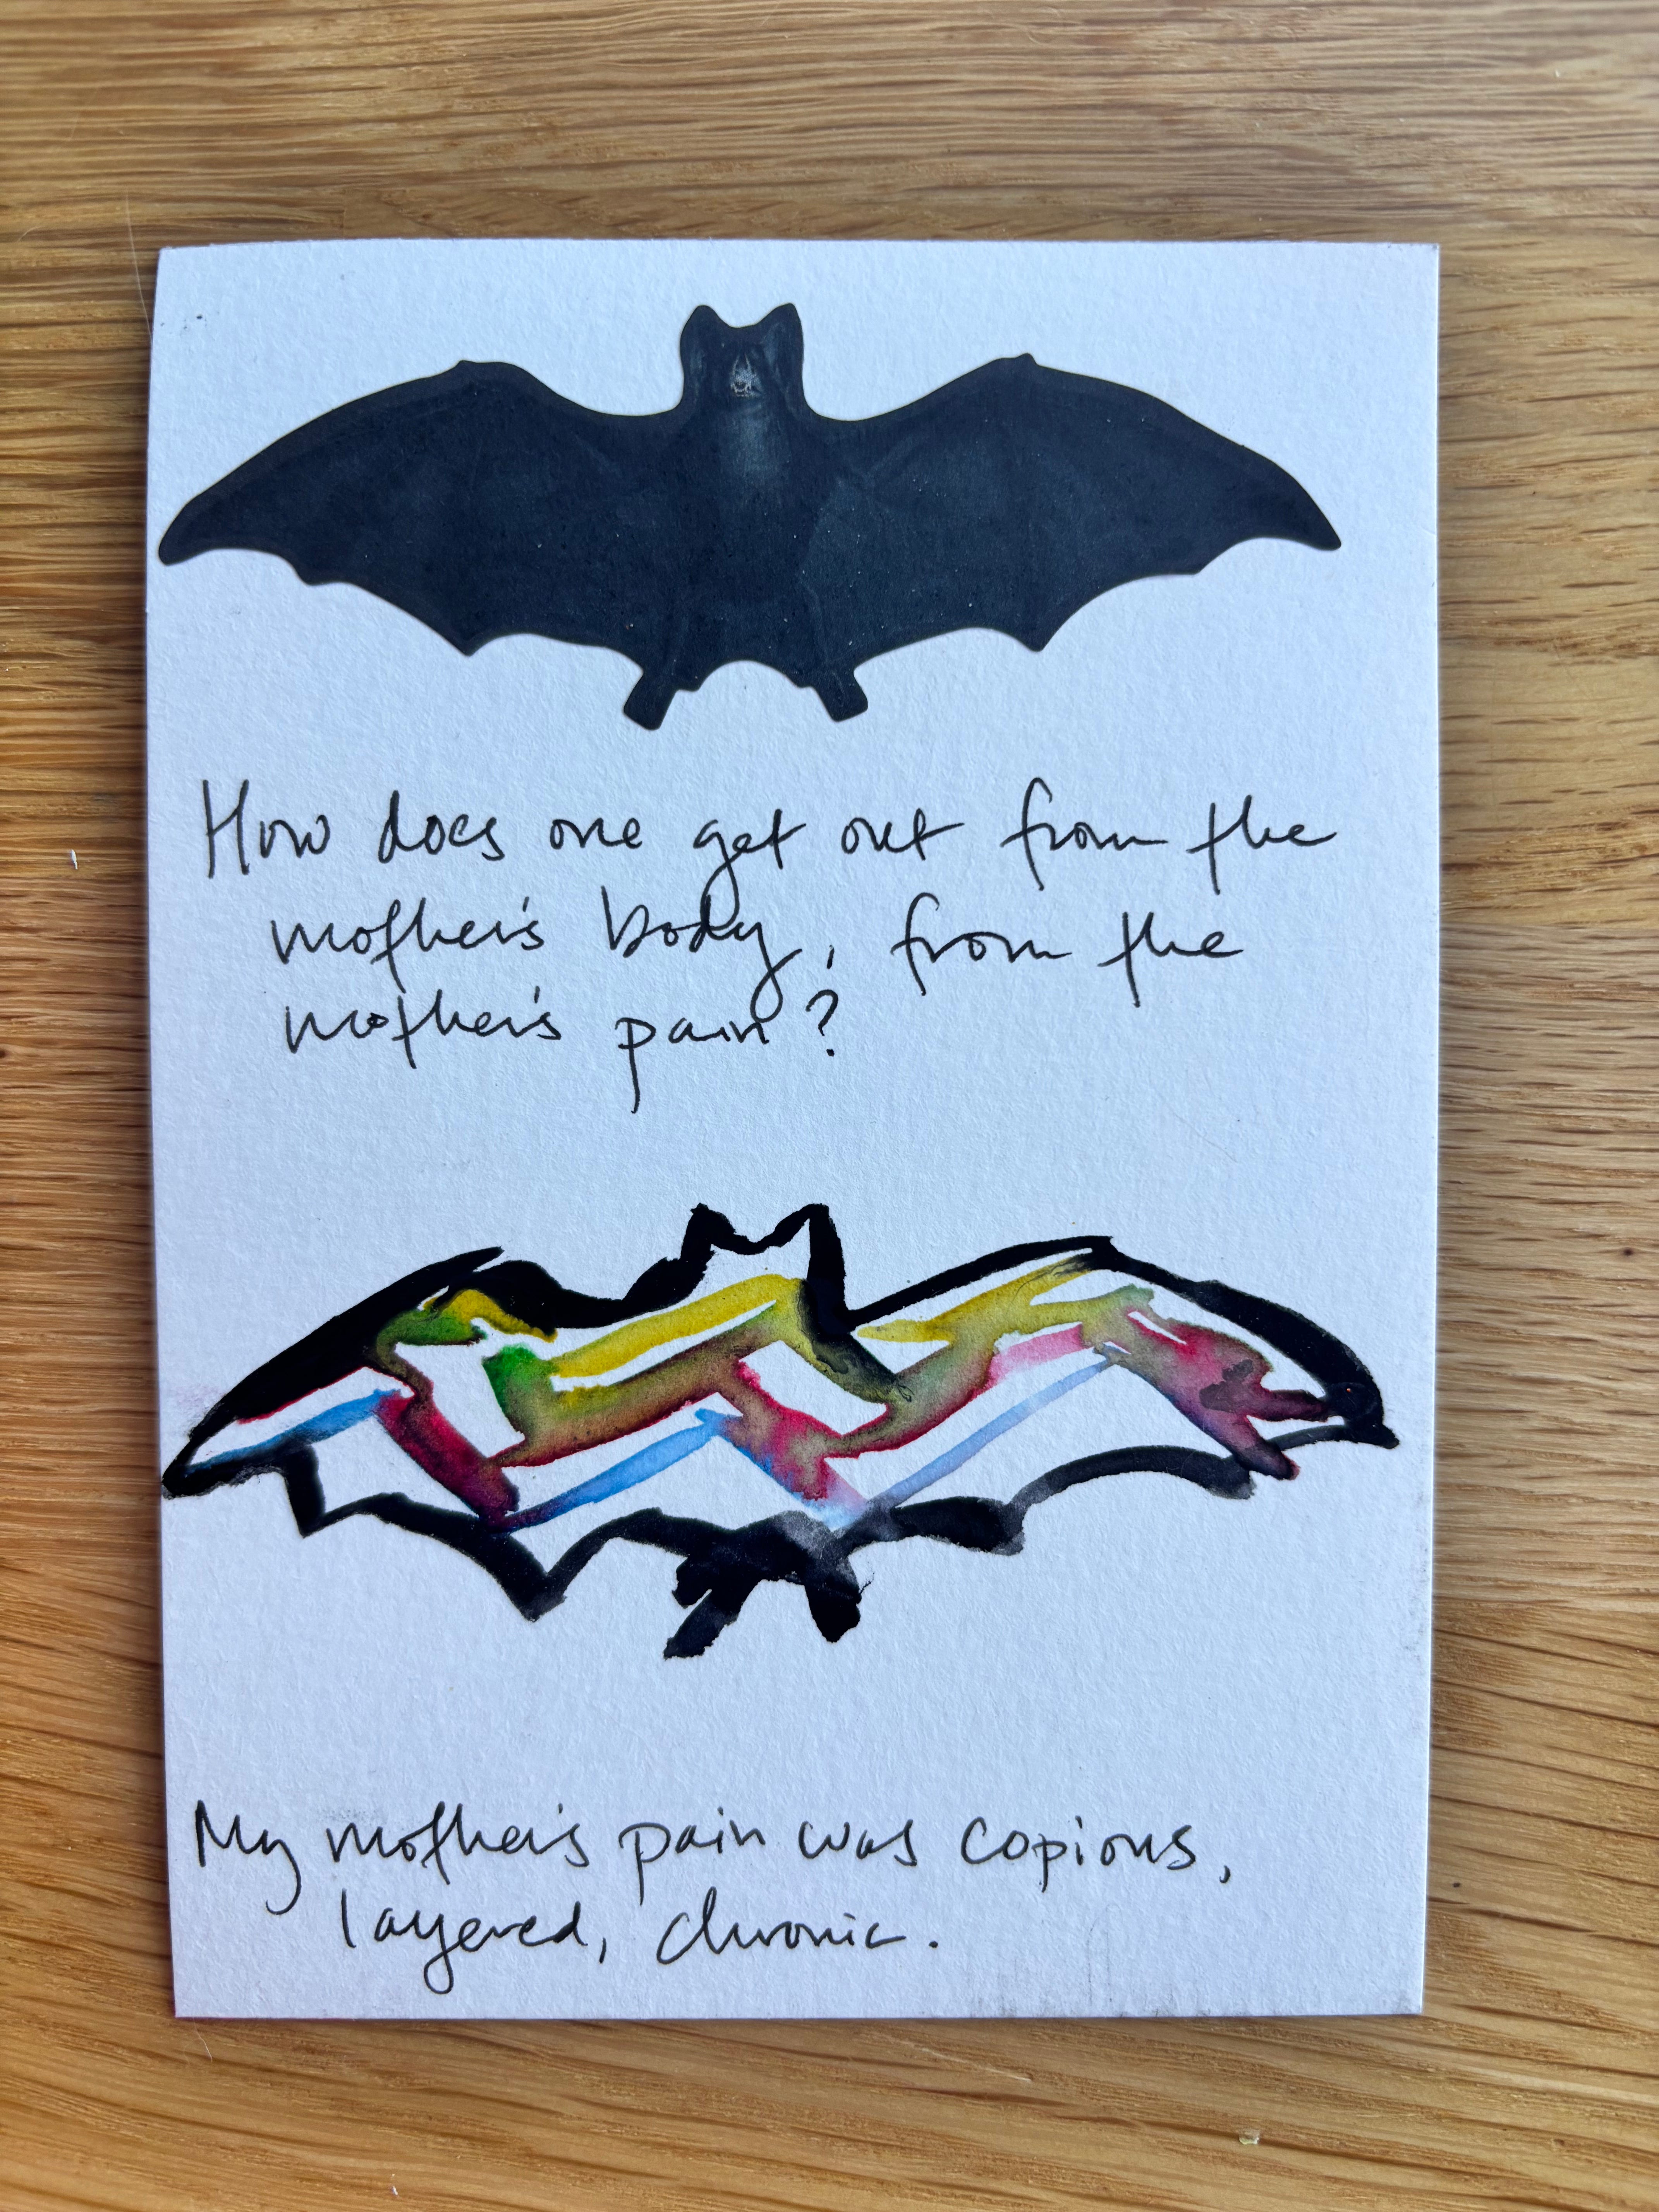 How does one get out from the
mother's body, from the
mother's pain?
My mother's pain was copious,
layered, chronic.